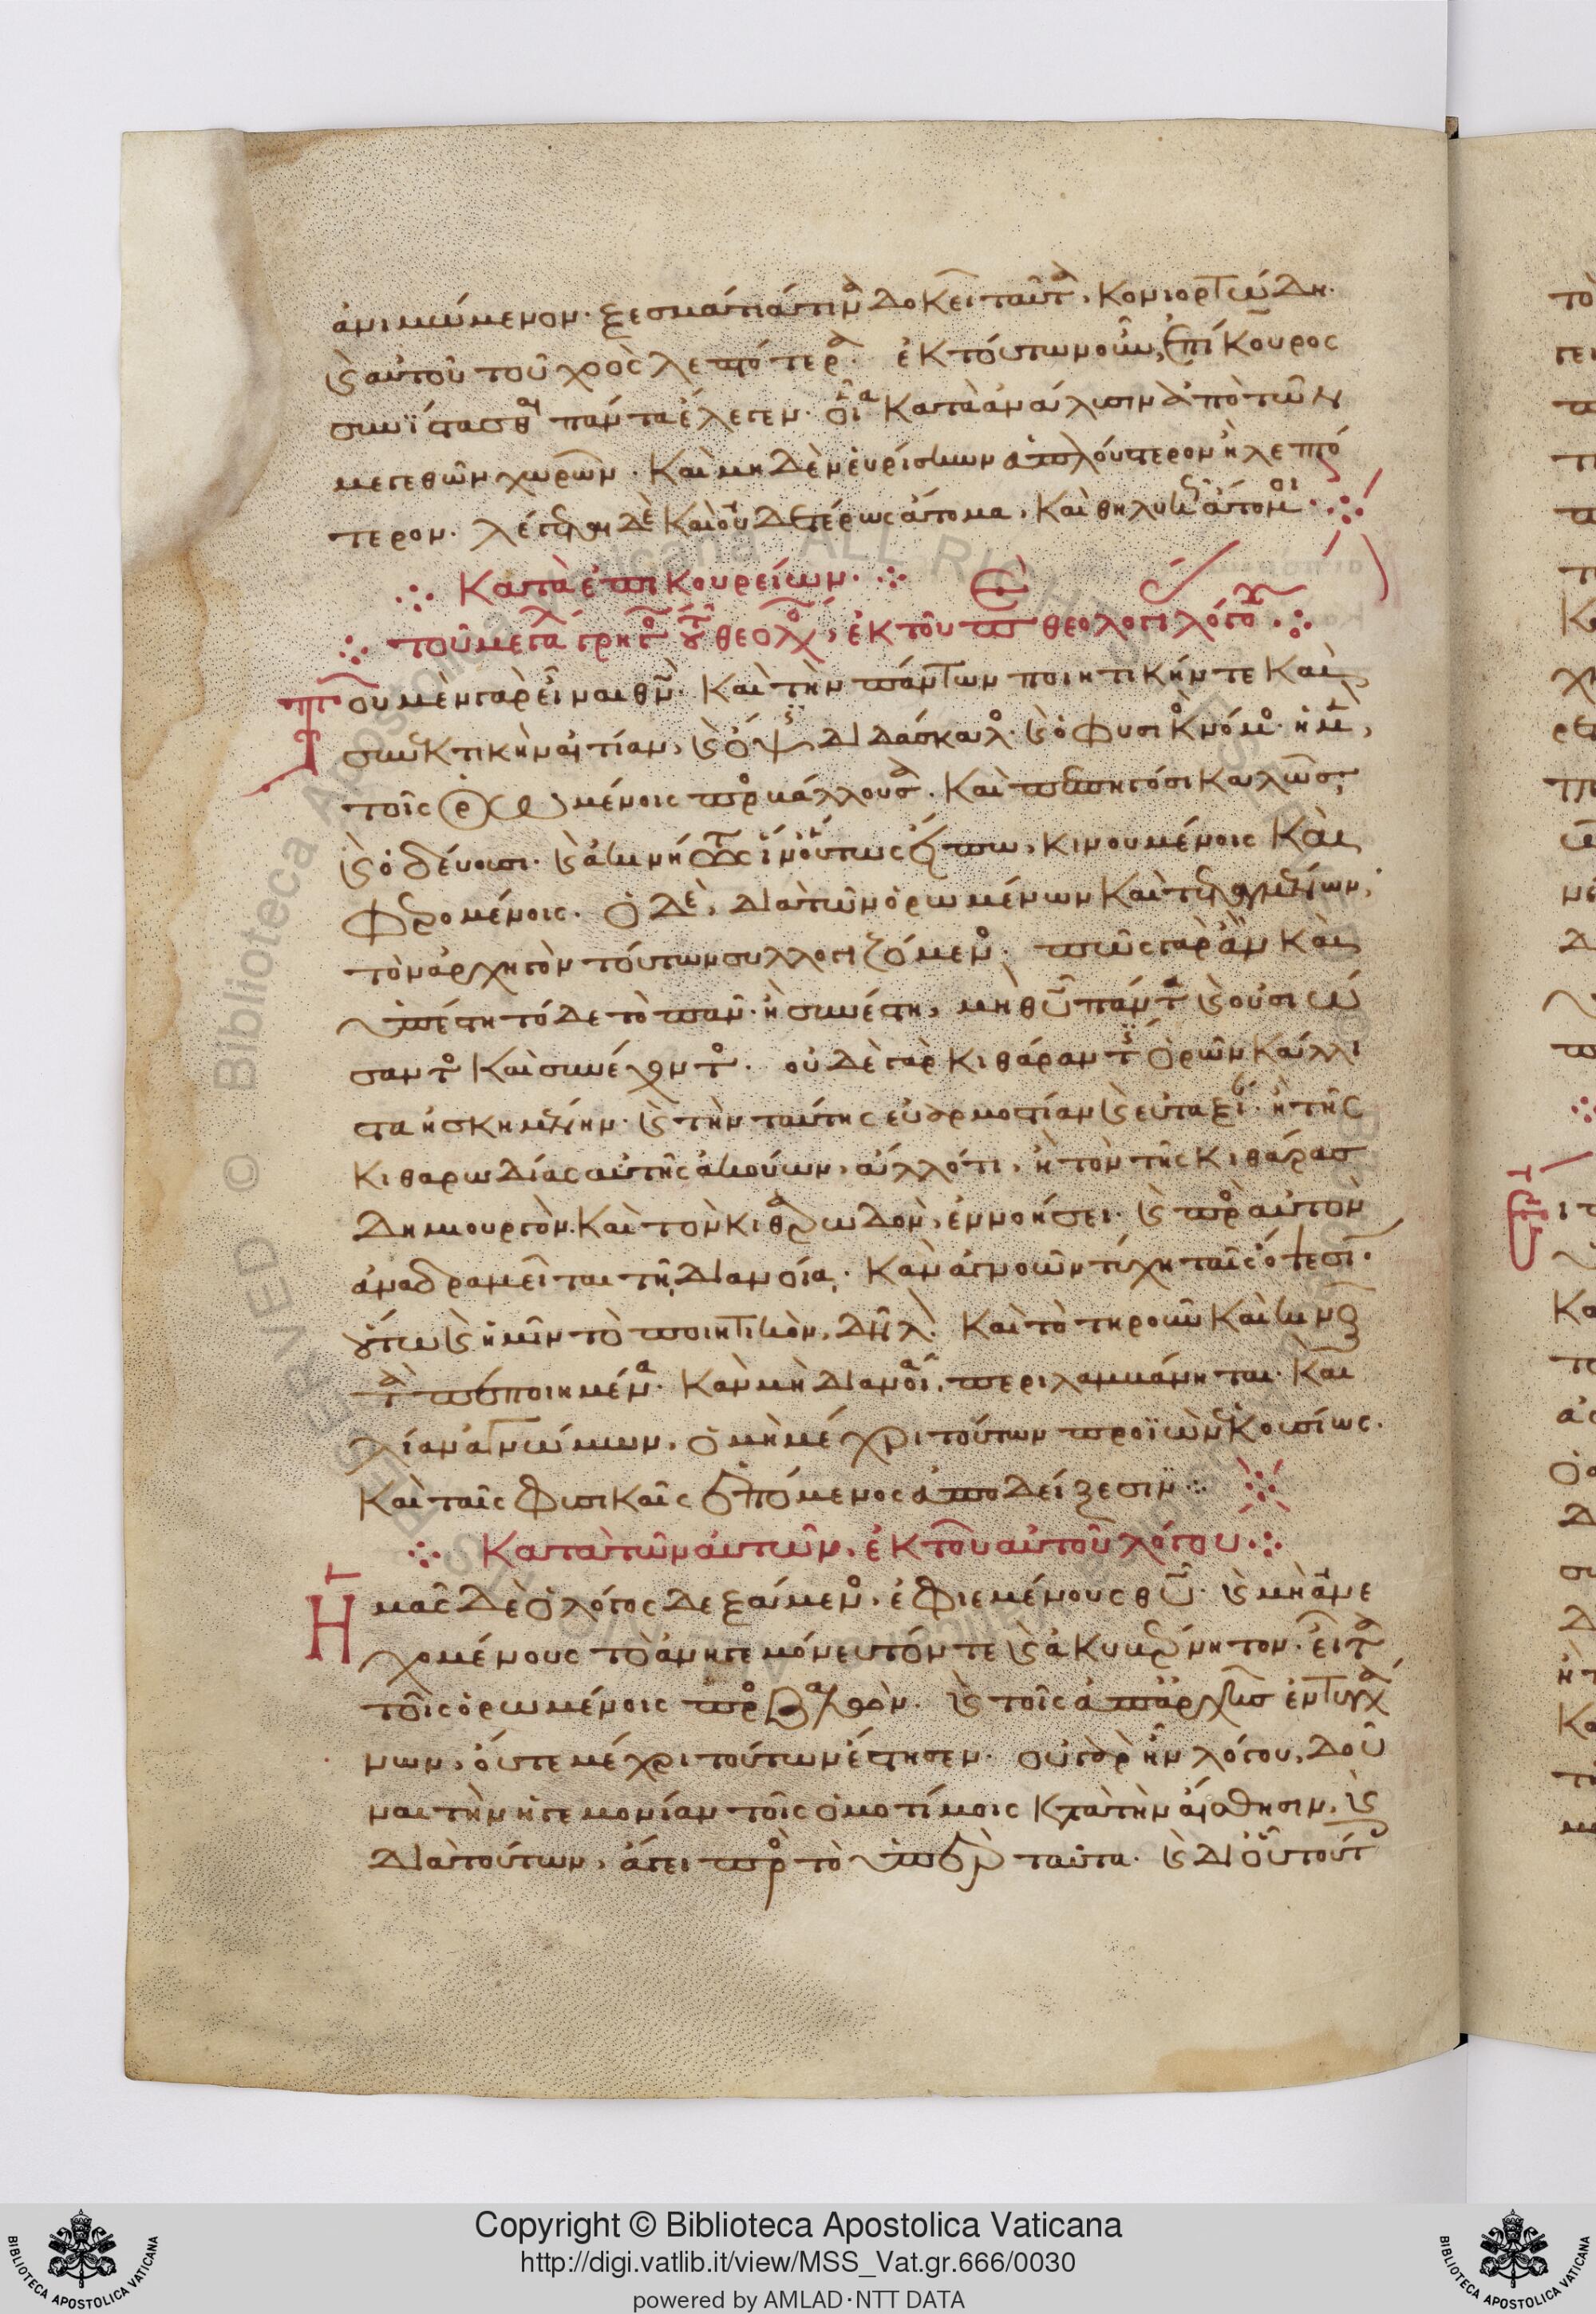 ἀνιμώμενον· ξεσμάτια τινὰ δοκεῖ ταῦτα, κονιορτώδη·
καὶ αὐτοῦ τοῦ χοὸς λεπτότερα. ἐκ τούτων οὖν, Ἐπίκουρος
συνίστασθαι πάντα ἔλεγεν· οἷα κατὰ ἀνάλυσιν ἀπὸ τῶν
μεγεθῶν χωροῦν. καὶ μηδὲν εὑρίσκων ἁπλούστερον ἢ λεπτό
τερον. λέγεται δὲ καὶ οὐδετέρως ἄτομα, καὶ θηλυκῶς ἄτομοι·
κατὰ ἐπικουρείων·
τοῦ μεγάλου Γρηγορίου τοῦ θεολόγου, ἐκ τοῦ περὶ θεολογίας λόγου·
Τοῦ μὲν γὰρ εἶναι θεόν· καὶ τὴν πάντων ποιητικήν τε καὶ
συνεκτικὴν αἰτίαν, καὶ ὄψις διδάσκαλος καὶ ὁ φυσικὸς νόμος· ἡ μὲν,
τοῖς ὁρωμένοις προσβάλλουσα. καὶ πεπηγόσι καλῶς
καὶ ὁδεύουσι· καὶ ἀκινήτως ἵν' οὕτως εἴπω, κινουμένοις καὶ
φερομένοις· ὁ δὲ, διὰ τῶν ὁρωμένων καὶ τεταγμένων,
τὸν ἀρχηγὸν τούτων συλλογιζόμενος· πῶς γὰρ ἂν καὶ
ὑπέστη τόδε τὸ πᾶν· ἢ συνέστη, μὴ θεοῦ πάντα καὶ οὐσιώ
σαντος καὶ συνέχοντος. οὐδὲ γὰρ κιθάραν τις ὁρῶν κάλλι
στα ἠσκημένην· καὶ τὴν ταύτης εὐαρμοστίαν καὶ εὐταξίαν· ἢ τῆς
κιθαρωδίας αὐτῆς ἀκούων, ἄλλό τι, ἢ τὸν τῆς κιθάρας
δημιουργὸν. καὶ τὸν κιθαρωδὸν, ἐννοήσει· καὶ πρὸς αὐτὸν
ἀναδραμεῖται τῆ, διανοία. κἂν ἀγνοῶν τύχη ταῖς ὄψεσιν·
οὕτω καὶ ἡμῖν τὸ ποιητικὸν, δῆλον. καὶ τὸ τηροῦν καὶ κινοῦν
τὰ πεποιημένα· κἂν μὴ διανοία, περιλαμβάνηται. καὶ
λίαν ἀγνώμων, ὁ μὴ μέχρι τούτων προϊὼν ἑκουσίως.
καὶ ταῖς φυσικαῖς ἑπόμενος ἀποδείξεσιν:
κατὰ τῶν αὐτῶν, ἐκ τοῦ αὐτοῦ λόγου:
Ἡμᾶς δὲ ὁ λόγος δεξάμενος, ἐφιεμένους θεοῦ· καὶ μὴ ἀνε
χομένους τὸ ἀνηγεμόνευτόν τε καὶ ἀκυβέρνητον· εἶτα
τοῖς ὁρωμένοις προσβάλλων· καὶ τοῖς ἀπαρχῆς ἐντυγχά
νων, οὔτε μέχρι τούτων ἔστησεν· οὐ γὰρ ἦν λόγου, δοῦ
ναι τὴν ἡγεμονίαν τοῖς ὁμοτίμοις κατὰ τὴν αἴσθησιν, καὶ
διὰ τούτων, ἄγει πρὸς τὸ ὑπὲρ ταῦτα· καὶ δι' οὗ τούτοις
Copyright © Biblioteca Apostolica Vaticana
http://digi.vatlib.it/view/MSS_Vat.gr.666/0030
powered by AMLAD·NTT DATA